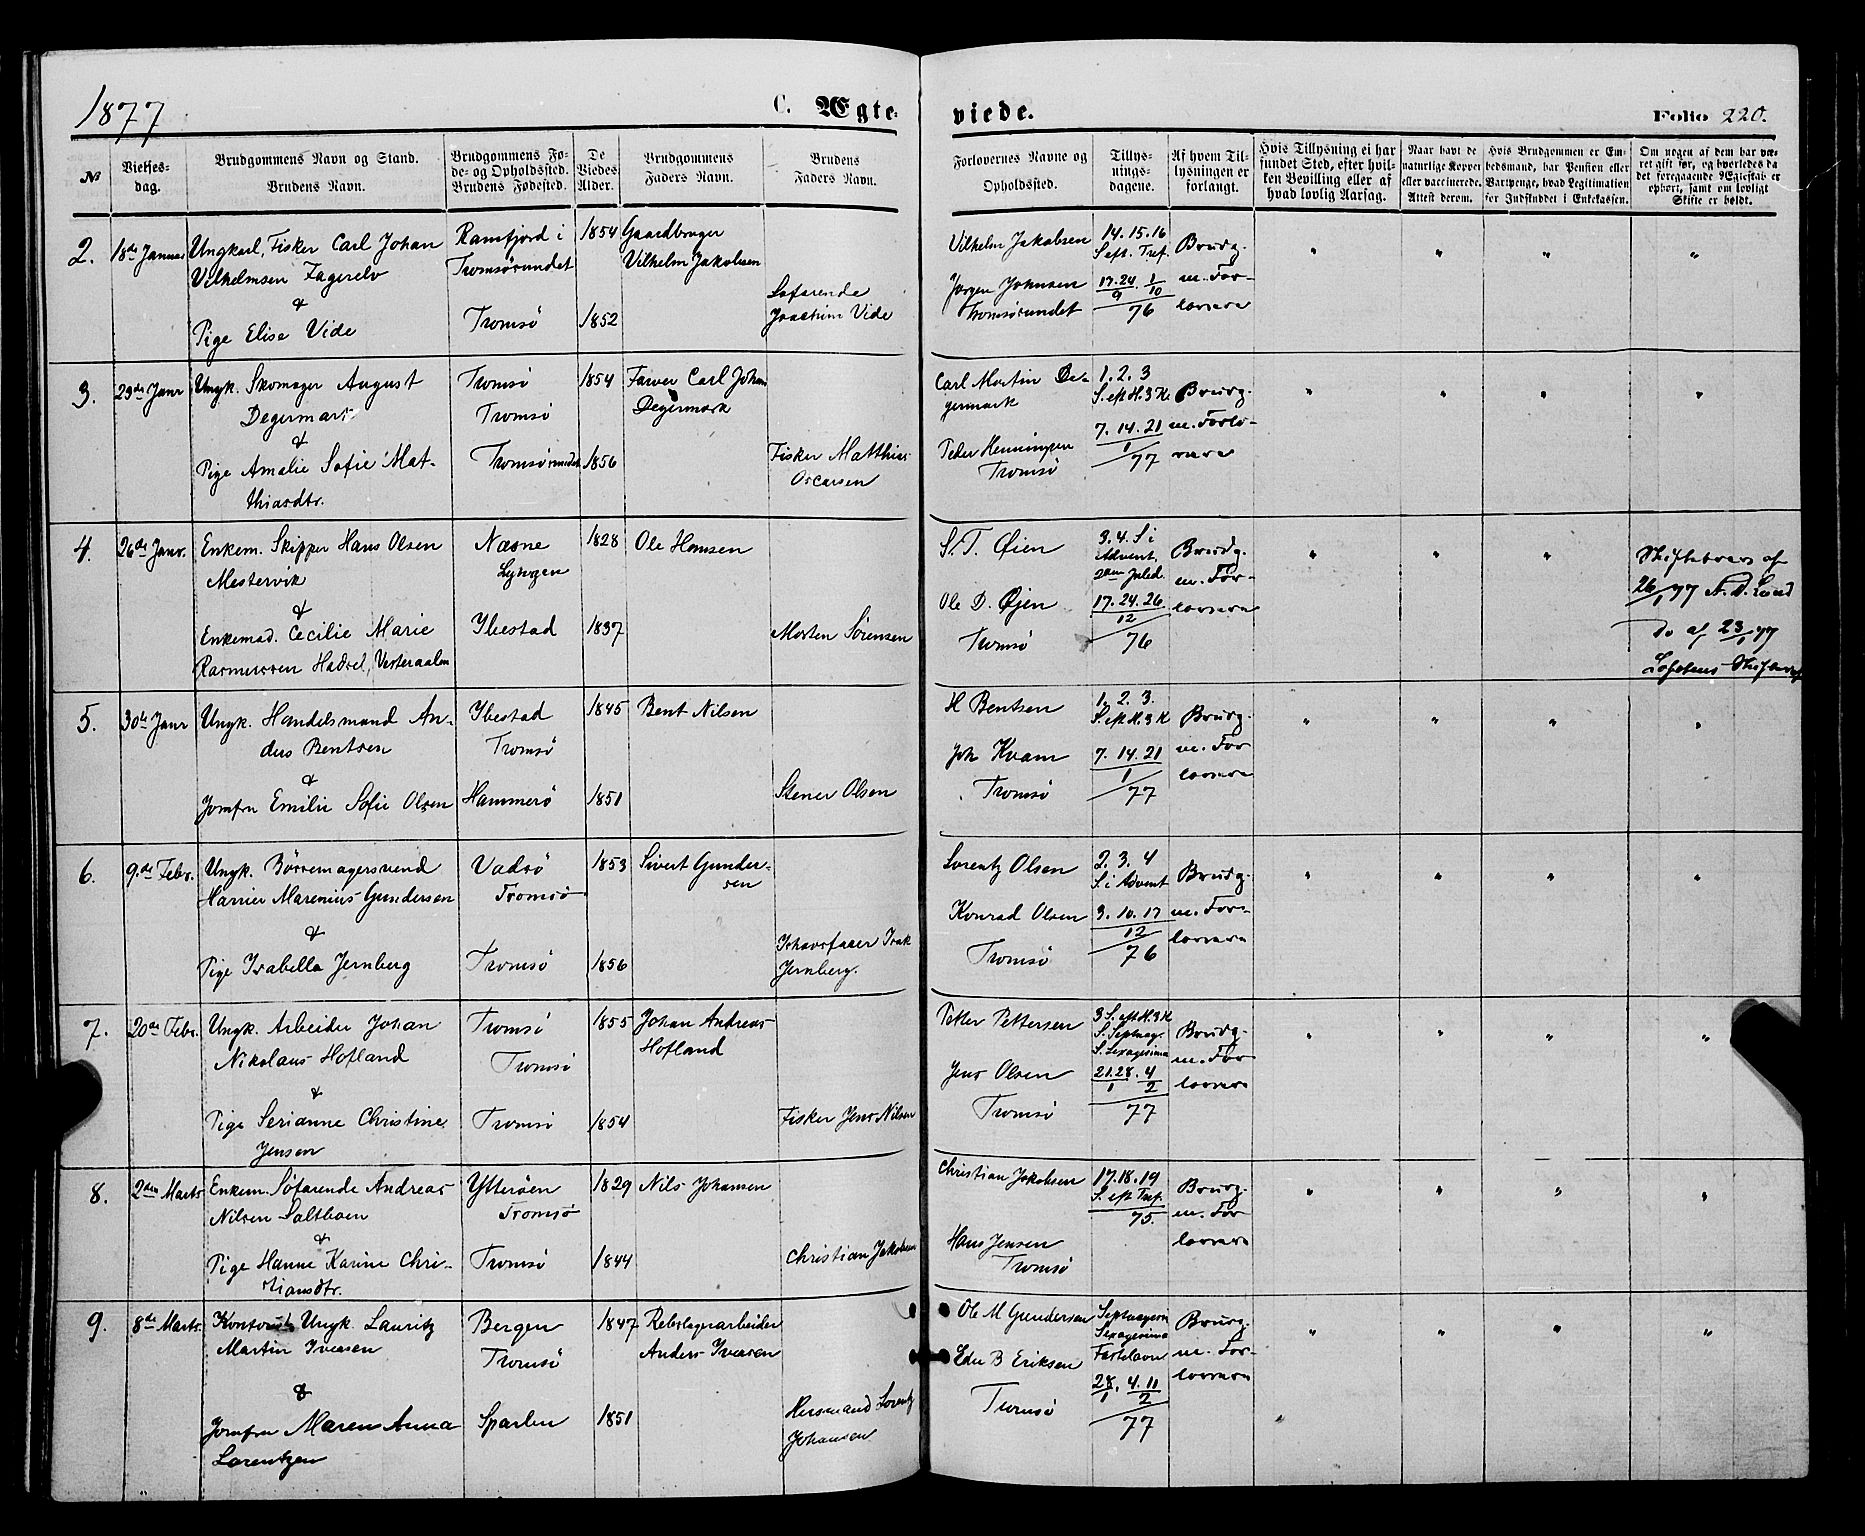 1877
C. Ægte-
viede.
Folio 220.
№
Vielses-
dag.
Brudgommens Navn og Stand.
Brudens Navn.
Brudgommens Fø-
de- og Opholdssted.
Brudens Fødested.
De
Viedes
Alder.
Brudgommens
Faders Navn.
Brudens
Faders Navn.
Forlovernes Navne og
Opholdssted.
Tillys-
nings-
dagene.
Af hvem Til-
lysningen er
forlangt.
Hvis Tillysning ei har
fundet Sted, efter hvil-
ken Bevilling eller af
hvad lovlig Aarsag.
Naar havt de
naturlige Kopper
eller vaccinerede.
Attest derom.
Hvis Brudgommen er Em-
bedsmand, har Pension eller
Vartpenge, hvad Legitimation
for Indskuddet i Enkekassen.
Om nogen af dem har væ-
ret gift før, og hvorledes da
det foregaaende Ægteskab er
ophørt, samt om lovligt
Skifte er holdt.
2.
18de Januar
Ungkarl, Fisker Carl Johan
Vilhelmsen Fagerelv
&
Pige Elise Vide
Ramfjord i
Tromsøsundet
Tromsø
1854
1852
Gaardbruger
Vilhelm Jakobsen
Søfarende
Joachim Vide
Vilhelm Jakobsen
Jørgen Johnsen
Tromsøsundet
14. 15. 16
S. eft. Tref.
17. 24/9 . 1/10
76
Brudg.
m. For-
lovere
"
"
"
"
3.
23de Janr
Ungk. Skomager August
Degermark
&
Pige Amalie Sofie Mat-
thiasdtr.
Tromsø
Tromsø
Tromsøsundet
1854
1856
Farver Carl Johan
Degermark
Fisker Matthias
Oscarsen
Carl Martin De-
germark
Peder Henningsen
Tromsø
1. 2. 3
S. eft H. 3 K.
7. 14. 21/1
77
Brudg.
m. Forlo-
vere
"
"
"
"
4.
26de Janr.
Enkem. Skipper Hans Olsen
Mestervik
&
Enkemad. Cecilie Marie
Rasmussen Hadsel, Vesteraalen
Næsne
Lyngen
Ibestad
1828
1837
Ole Hansen
Morten Sørensen
S. T. Øien
Ole D. Øjen
Tromsø
3. 4. S i
Advent
2den Juled.
17. 24. 26/12
76
Brudg.
m. For-
lovere
"
"
"
Skiftebrev af
26/1 77 A. D. Lund
Do af 23/1 77
5.
30de Janr
Ungk. Handelsmand An-
ders Bentsen
&
Jomfru Emilie Sofie Olsen
Ibestad
Tromsø
Hammerø
1845
1851
Bent Nilsen
Stener Olsen
H Bentsen
Joh Kvam
Tromsø
1. 2. 3.
S. eft H. 3 K
7. 14. 21/1
77
Brudg.
m. For
lovere
"
"
"
"
6.
9de Febr.
Ungk. Børsemagersvend
Marenius Gundersen
&
Pige Isabella Jernberg
Vadsø
Tromsø
Tromsø
1853
1856
Sivert Gunder-
sen
Isak
Jernberg.
Lorentz Olsen
Konrad Olsen
Tromsø
2. 3. 4
S. i Advent
3. 10. 17/12
76
Brudg.
m. For-
lovere
"
"
"
"
7.
20de Febr.
Ungk. Arbeider Johan
Nikolaus Hofland
&
Pige Serianne Christine
Jensen
Tromsø
Tromsø
Tromsø
1855
1854
Johan Andreas
Hofland
Fisker Jens Nilsen
Petter Pettersen
Jens Olsen
Tromsø
3 S. eft H. 3 K
S. Septuag.
S. Sexagesima
21. 28/1 . 4/2
77
Brudg.
m. For
lovere
"
"
"
"
8.
2den Marts
Enkem. Søfarende Andreas
Nilsen Saltboen
&
Pige Hanne Karine Chri-
stiansdtr.
Ytterøen
Tromsø
Tromsø
1829
1844
Nils Johansen
Christian Jakobsen
Christian Jakobsen
Hans Jensen
Tromsø
17. 18. 19
S. eft Tref.
75.
Brudg.
m. For
lovere
"
"
"
"
9.
8de Marts.
Kontorist Ungk. Lauritz
Martin Iversen
&
Jomfru Maren Anna
Lorentzen
Bergen
Tromsø
Sparbu
1847
1851
Rebslagerarbeider
Anders Iversen
Husmand Lorentz
Johansen
Ole M Gundersen
Edv B Eriksen
Tromsø
Septuagesim
Sexagesima
Fastelavn
28/1 . 4. 11/2
77
Brudg.
m. For-
lovere
"
"
"
"